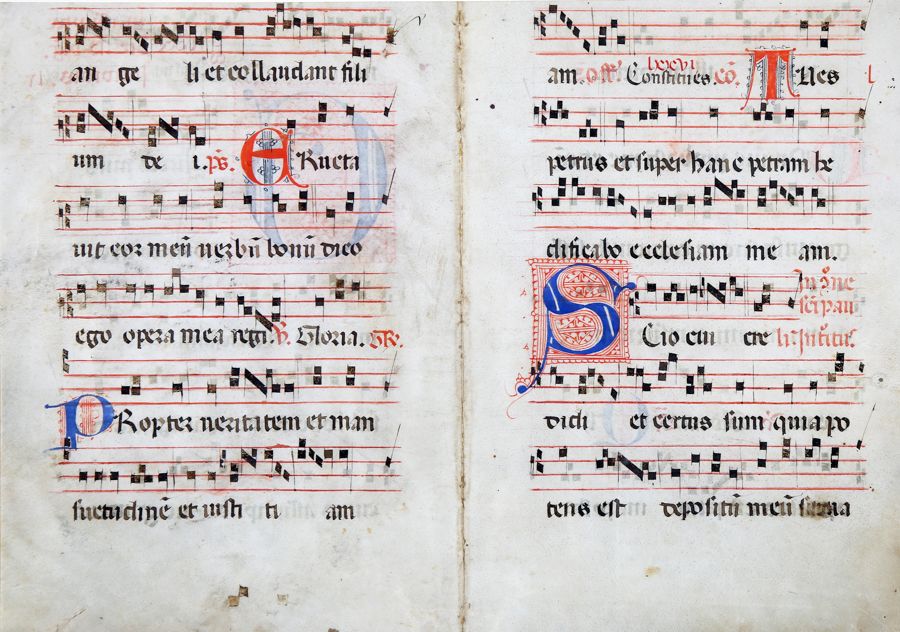 an ge li et collaudant fili
um de i. ps. ERucta
uit cor meū uerbū bonū dico
ego opera mea regi. V. Gloria. GR.
PRopter ueritatem et man
suetudinē et iusti ti am
am. off. Constitues. cō. TUes
petrus et super hanc petram he
dificabo ecclesiam me am.
SCio cui cre
didi et certus sum quia po
tens est depositū meū serua